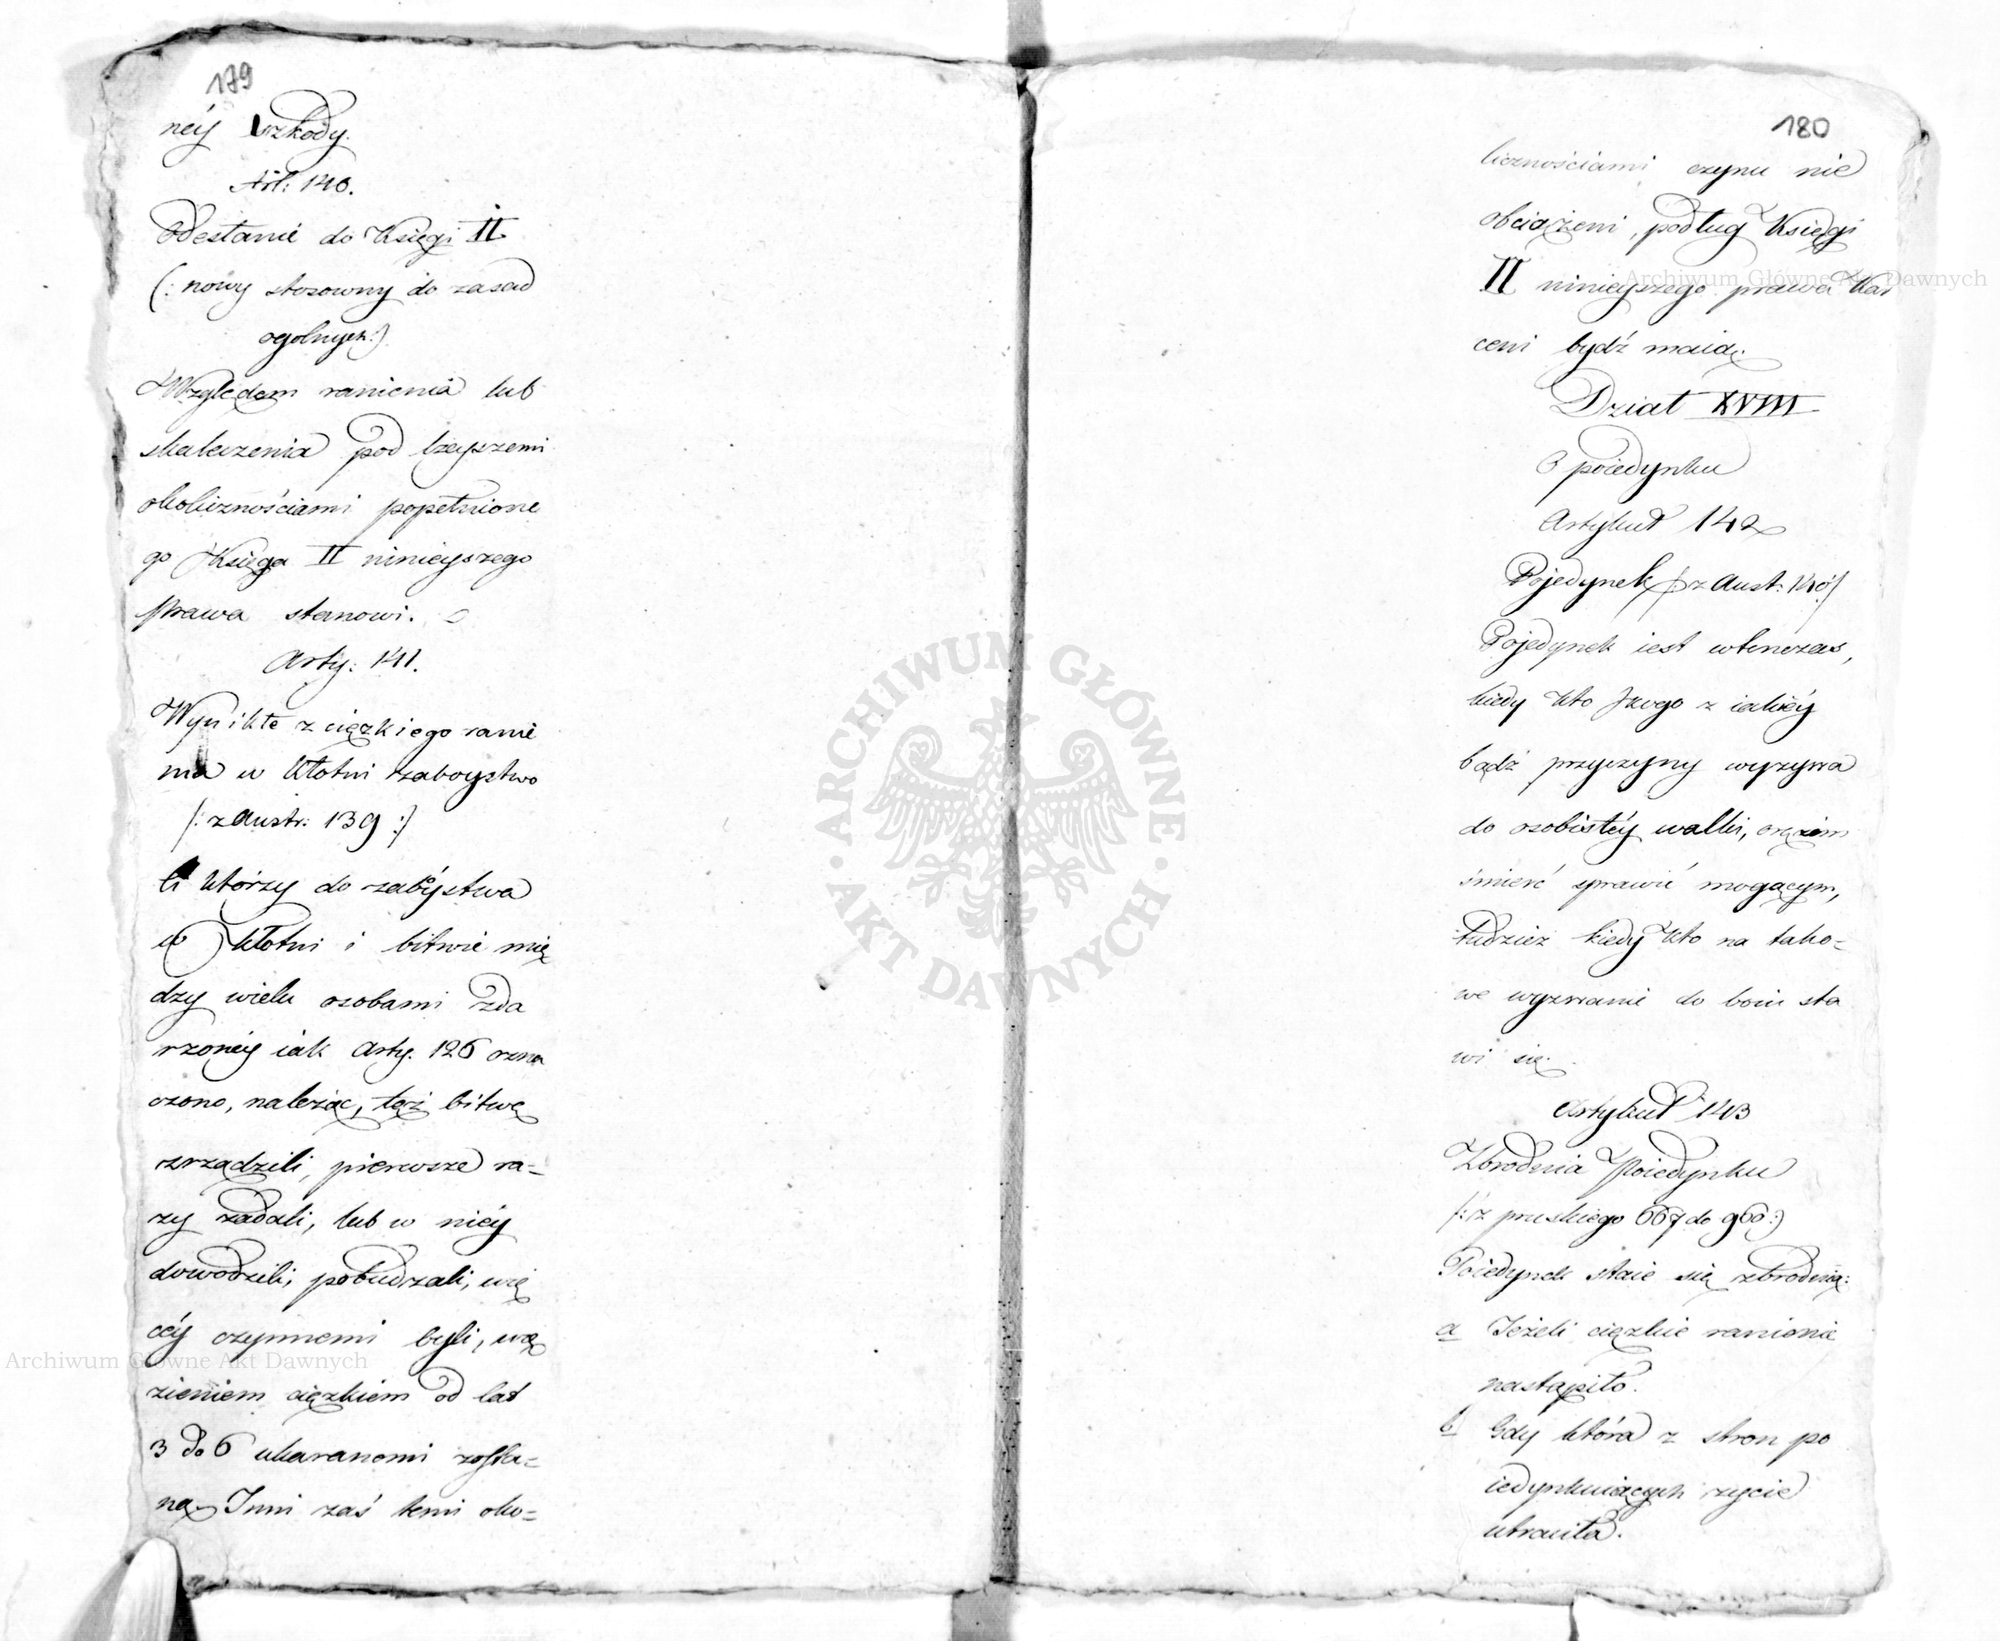 179
néy szkody.
Art: 140.
Odesłanie do Księgi II
(: nowy stosowny do zasad
ogolnych :)
Względem ranienia lub
skaleczenia pod lżeyszemi
okolicznościami popełnione
go Księga II ninieyszego
prawa stanowi.
Arty: 141.
Wynikłe z ciężkiego ranie
nia w kłotni zaboystwo
/: z Austr: 139 :/
Ci którzy do zabóystwa
w kłotni i bitwie mię
dzy wielu osobami zda
rzonéy iak Arty. 126 ozna
czono, należąc, tęż bitwę
zrządzili, pierwsze ra-
zy zadali, lub w niéy
dowodzili, pobudzali, wię
céy czynnemi byli, wię
zieniem ciężkiem od lat
3 do 6 ukaranemi zosta-
ną. Inni zaś temi oko-
180
licznościami czynu nie
obciążeni, podług Księgi
II ninieyszego prawa kar
ceni bydź maią.
Dział XVIII
O poiedynku
Artykuł 142
Pojedynek /: z Aust: 140 :/
Pojedynek iest wtenczas,
kiedy kto kogo z iakiéy
bądź przyczyny wyzywa
do osobistéy walki, orężem
śmierć sprawić mogącym,
tudzież kiedy kto na tako-
we wyzwanie do boiu sta
wi się.
Artykuł 143
Zbrodnia Poiedynku
/: z pruskiego 667 do 960 :/
Poiedynek staie się zbrodnią:
a Jeżeli ciężkie ranienie
nastąpiło.
b Gdy która z stron po
iedynkuiących życie
utraciła.
Archiwum Główne Akt Dawnych
Archiwum Główne Akt Dawnych
ARCHIWUM GŁÓWNE · AKT DAWNYCH ·